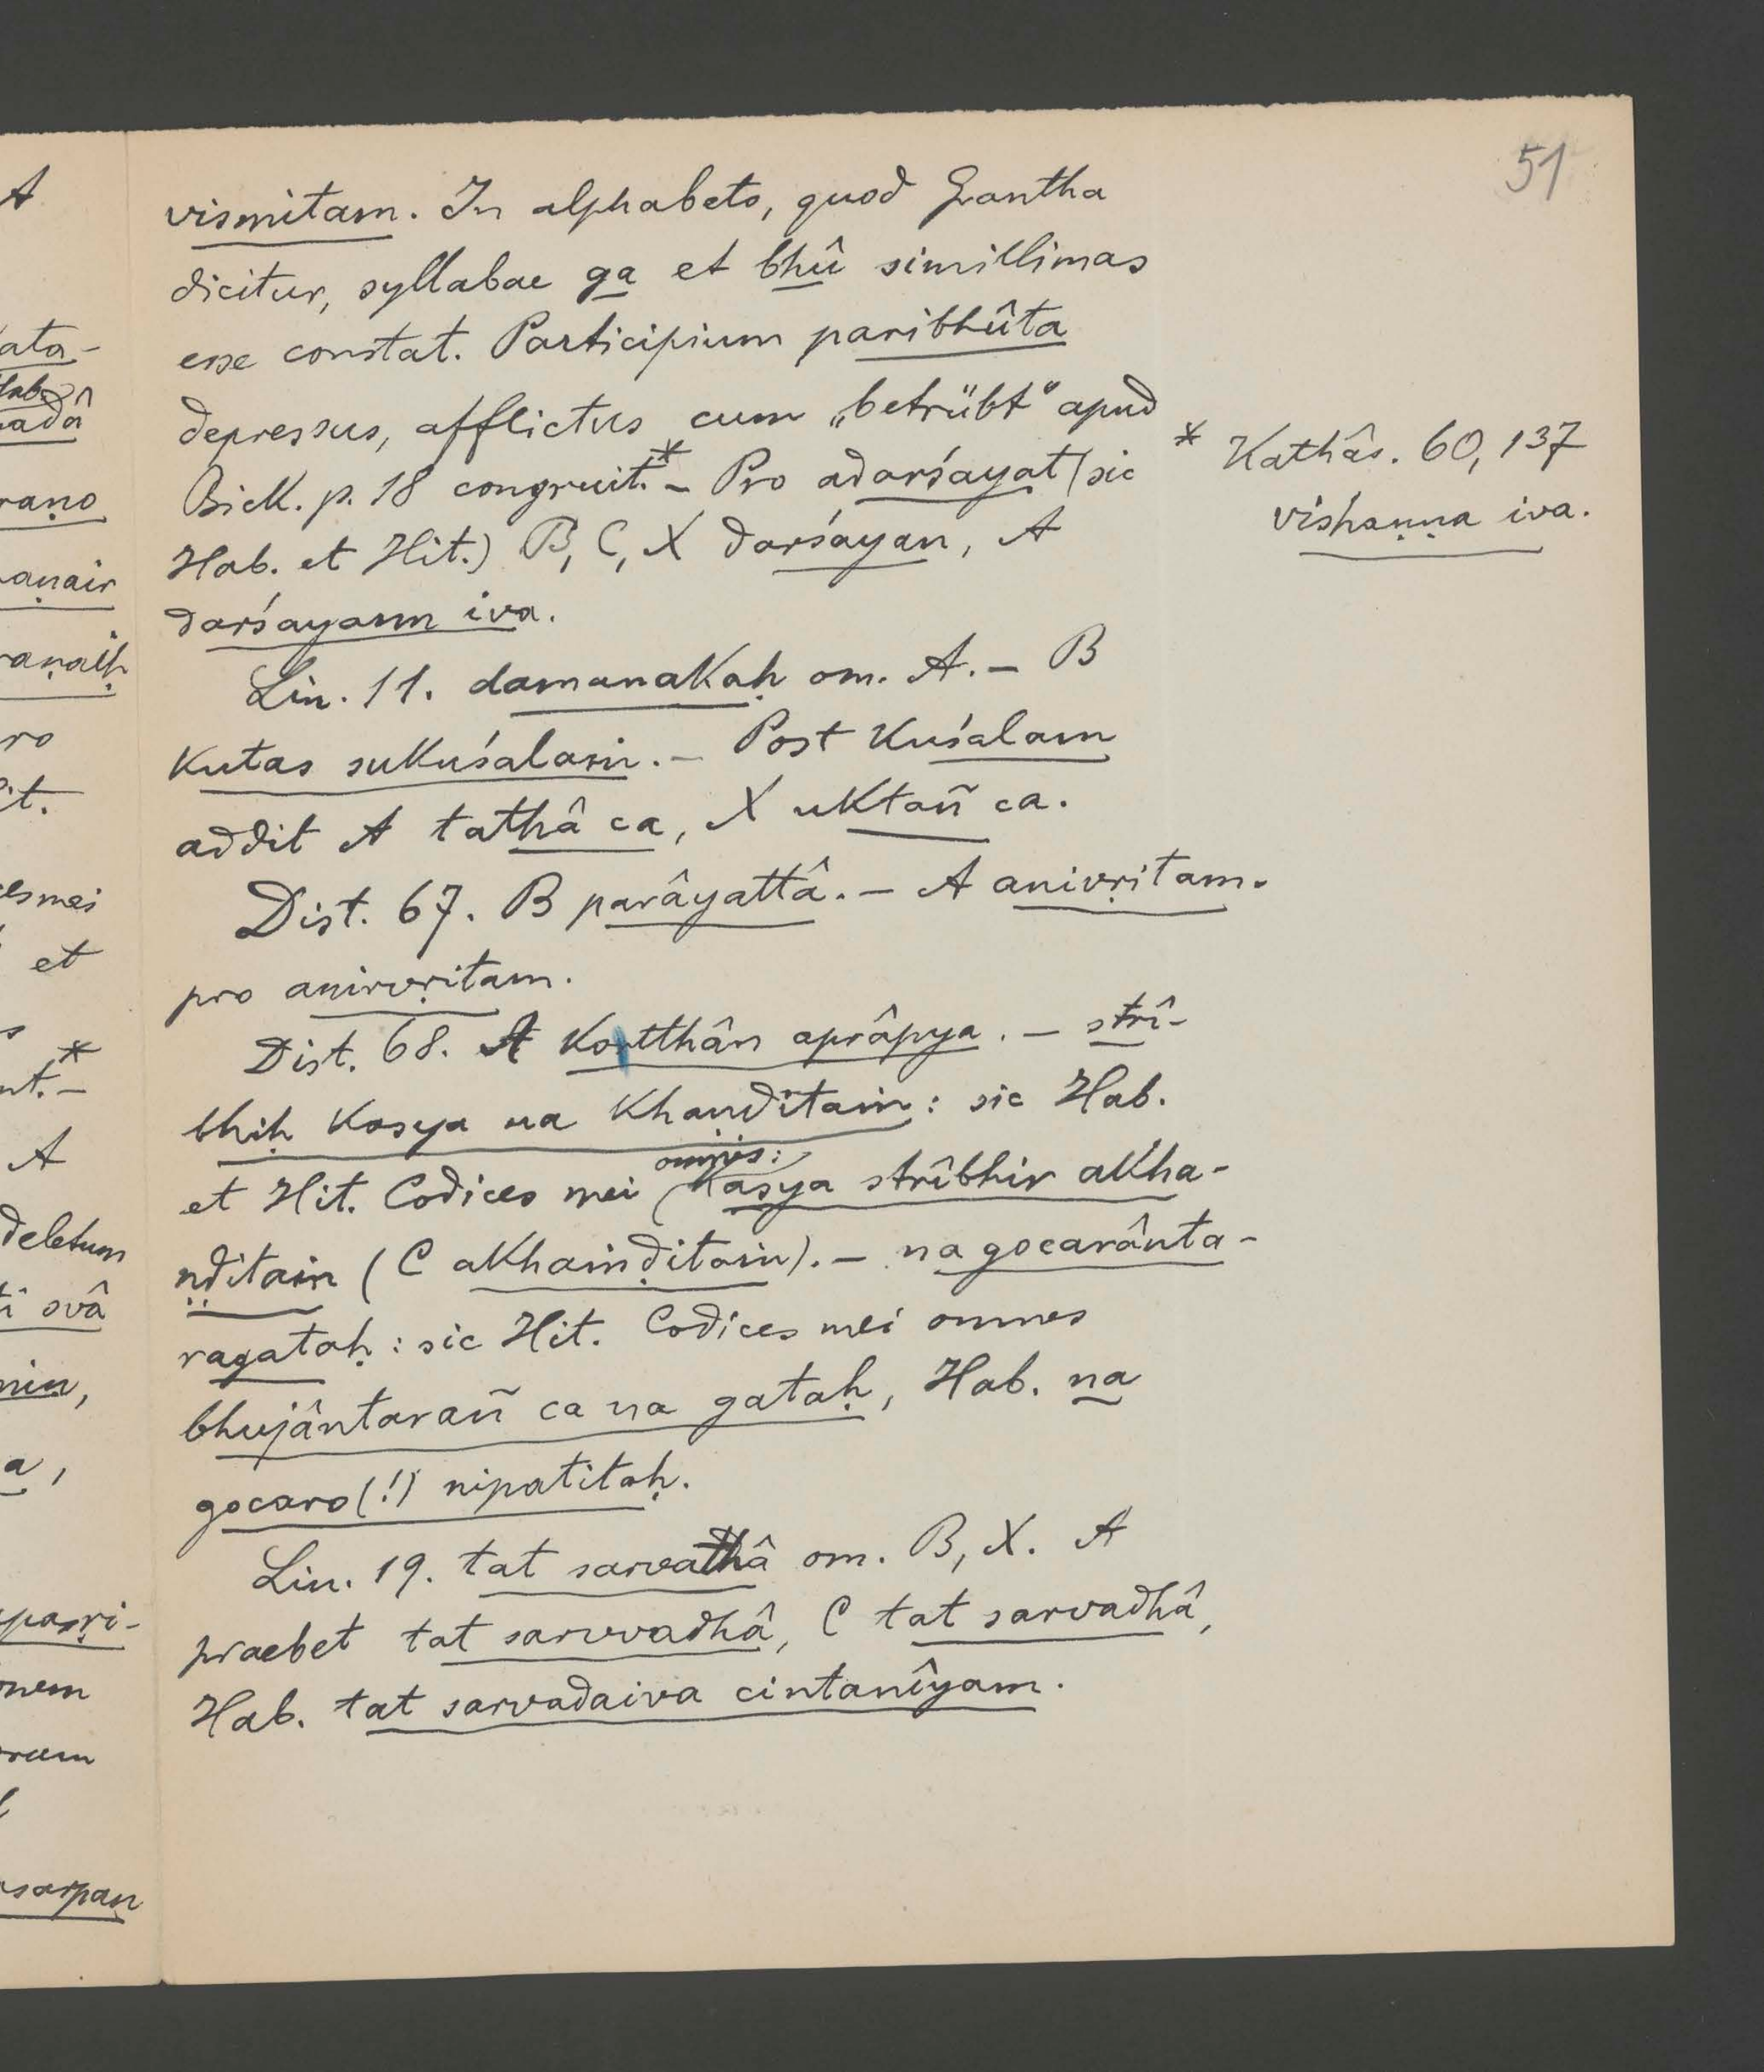 51
vismitam. In alphabeto, quod Grantha
dicitur, syllabae ga et bhû simillimas
esse constat. Participium paribhûta
depressus, afflictus cum „betrübt“ apud
Bick. p. 18 congruit.* – Pro adarśayat (sic
Hab. et Hit.) B, C, X darśayan, A
darśayann iva.
* Kathâs. 60, 137
vishaṇṇa iva.
Lin. 11. damanakaḥ om. A. – B
kutas sukuśalaṁ. – Post kuśalam
addit A tathâ ca, X uktañ ca.
Dist. 67. B parâyattâ. – A anivṛitam.
pro anirvṛitam.
Dist. 68. A kortthân aprâpya. – strî-
bhiḥ kasya na khaṇḍitaṁ: sic Hab.
et Hit. Codices mei omnes: kasya strîbhir akha-
ṇḍitaṁ (C akhaṁḍitaṁ). – na gocarânta-
ragataḥ: sic Hit. Codices mei omnes
bhujântarañ ca na gataḥ, Hab. na
gocaro (!) nipatitaḥ.
Lin. 19. tat sarvathâ om. B, X. A
praebet tat sarvvadhâ, C tat sarvadhâ,
Hab. tat sarvadaiva cintanîyam.
A
ata-
Hab.
adâ
raṇo
aṇair
raṇaiḥ
ro
it.
esmei
et
s
nt.* –
A
deletum
svâ
nin,
a,
nem
rum
sarpan